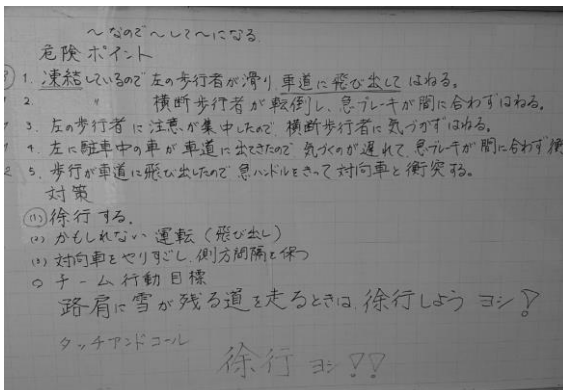 〜なので〜して〜になる
危険ポイント
1. 凍結しているので左の歩行者が滑り、車道に飛び出してはねる。
2. 〃 横断歩行者が転倒し、急ブレーキが間に合わずはねる。
3. 左の歩行者に注意が集中したので、横断歩行者に気づかずはねる。
4. 左に駐車中の車が車道に出てきたので、気づくのが遅れて、急ブレーキが間に合わず衝
5. 歩行が車道に飛び出したので急ハンドルをきって対向車と衝突する。
対策
(1) 徐行する。
(2) かもしれない運転(飛び出し)
(3) 対向車をやりすごし、側方間隔を保つ
○ チーム行動目標
路肩に雪が残る道を走るときは、徐行しよう ヨシ!
タッチアンドコール
徐行 ヨシ!!